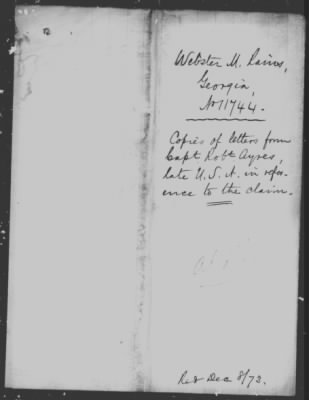 Webster M. Raines,
Georgia,
No 11744.
Copies of letters from
Capt Robt Ayres,
late U.S.A. in refer-
ence to the claim.
Rec Dec 8/72.